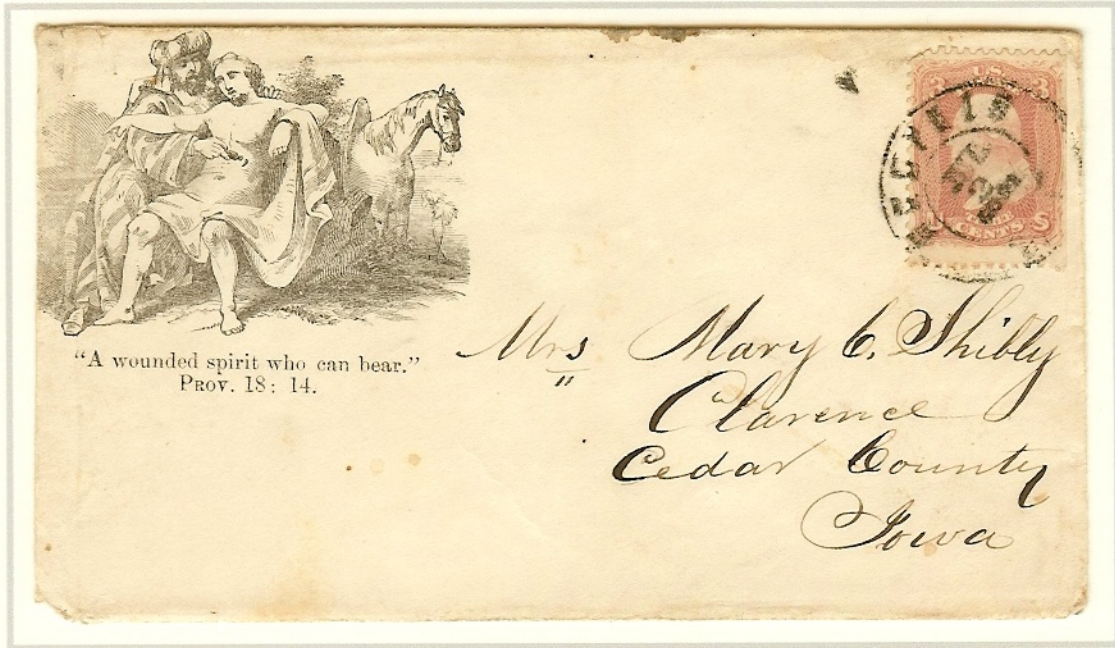 "A wounded spirit who can bear."
PROV. 18: 14.
U.S.
3 3
THREE
CENTS
Mrs Mary C. Shibly
Clarence
Cedar County
Iowa